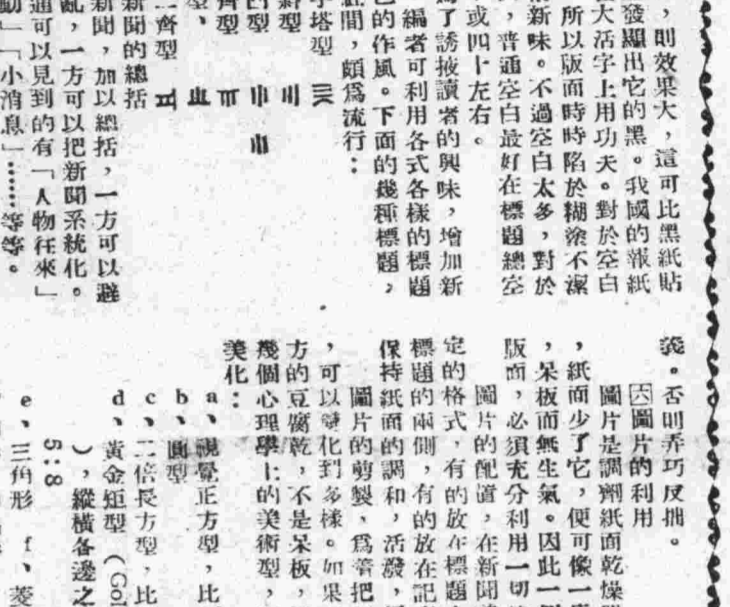 ，則效果大，這可比黑紙貼
發顯出它的黑。我國的報紙
在大活字上用功夫。對於空白
所以版面時時陷於糊塗不潔
清新味。不過空白太多，對於
，普通空白最好在標題總空
或四十左右。
爲了誘掖讀者的興味，增加新
編者可利用各式各樣的標題
色的作風。下面的幾種標題，
間，頗爲流行：
字塔型
斜型
凹型
齊型
型、
二齊型
新聞的總括
新聞，加以總括，一方可以避
亂，一方可以把新聞系統化。
通可以見到的有「人物往來」
動」「小消息」………等等。
義。否則弄巧反拙。
六圖片的利用
圖片是調劑紙面乾燥
，紙面少了它，便可像一
，呆板面無生氣。因此一
版面，必須充分利用一切
圖片的配置，在新聞
定的格式，有的放在標題
標題的兩側，有的放在記
保持紙面的調和，活潑，
圖片的剪製，爲善把
，可以變化到多樣。如果
方的豆腐乾，不是呆板，
幾個心理學上的美術型，
美化：
a、視覺正方型，比
b、圓型
c、二倍長方型，比
d、黃金矩型（Gol
），縱橫各邊之
5:8
e、三角形 f、菱